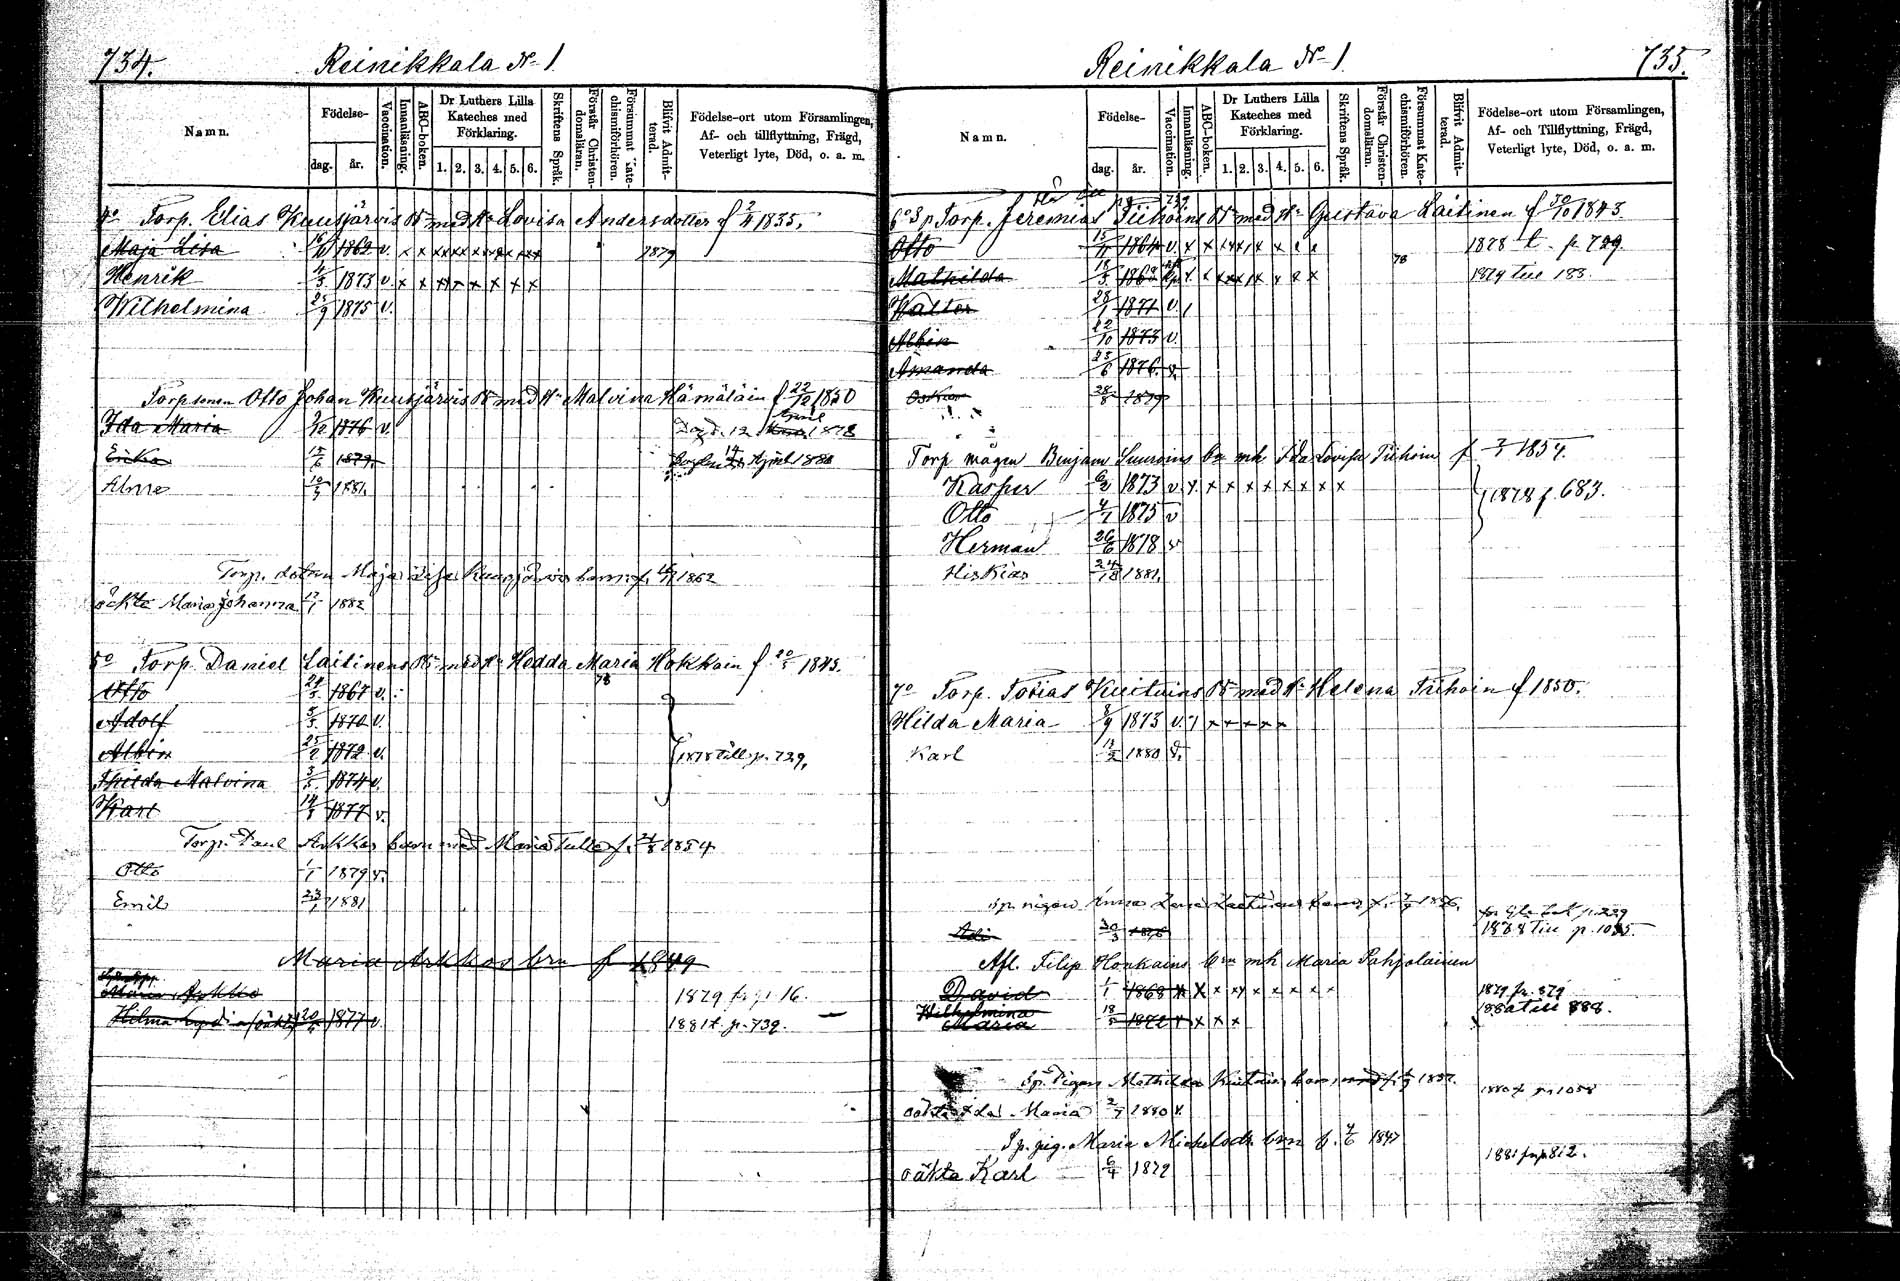 734.
Reinikkala No 1.
Namn.
Födelse-
dag. år.
Vaccination.
Innanläsning.
ABC-boken.
Dr Luthers Lilla Kateches med Förklaring.
1. 2. 3. 4. 5. 6.
Skriftens Språk.
Förstår Christendomsläran.
Försummat Katechismiförhören.
Blifvit Admitterad.
Födelse-ort utom Församlingen,
Af- och tillflyttning, Frägd,
Veterligt lyte, Död, o. a. m.
4o Torp. Elias Kuusjärvis Bn med Hu Lovisa Andersdotter f 2/4 1835.
Maja Lisa 1862 v. x x x x x x x x x x 1879
Henrik 4/3 1873 v x x x x x x x x
Wilhelmina 25/9 1875 v.
Torpsonen Otto Johan Kuusjärvis Bn med Hu Malvina Hämäläin f 22/12 1850
Ida Maria 1876 v. Död. 12 April 1878
Erika 1879. April 1880
Alma 10/9 1881.
Torp. dotren Maja Lisa Kuusjärvis barn. f. 1862
oäkta Maria Johanna 17/1 1882
5o Torp. Daniel Laitinens Bn med Hu Hedda Maria Hokkain f 20/5 1845.
78
Otto 24/5 1867 v.
Adolf 5/3 1870 v.
Albin 25/2 1872 v. 1878 till p. 729.
Hilda Malvina 3/5 1874 v.
Karl 14/8 1877 v.
Torp. Paul Arkkos barn med Maria f. 24/8 1854
Otto 1/1 1879 v.
Emil 23/7 1881
Maria Arkkos brn f 1849
Maria Arkko 1879 fr. p. 16.
Hilma Lydia (oäkta) 20/ 1877 v. 1881 t. p. 739.
735.
Reinikkala No 1.
Namn.
Födelse-
dag. år.
Vaccination.
Innanläsning.
ABC-boken.
Dr Luthers Lilla Kateches med Förklaring.
1. 2. 3. 4. 5. 6.
Skriftens Språk.
Förstår Christendomsläran.
Försummat Katechismiförhören.
Blifvit Admitterad.
Födelse-ort utom Församlingen,
Af- och Tillflyttning, Frägd,
Veterligt lyte, Död, o. a. m.
6o Torp. Jeremias Tiihoins Bn med Hu Gustava Laitinen f 30/10 1843
Otto 15/11 1864 v. x x x x x x 1878 t. p. 729.
Mathilda 18/3 1868 x x x x x x x 78 1879 till 183.
Walter 28/1 1871 v.
Albin 12/10 1873 v.
Amanda 25/6 1876. v.
Oskar 28/8 1879
Torp mågen Benjam Suuroins bn mh Ida Lovisa Tiihoin f 1854.
Kasper 6/2 1873 v. x. x x x x x x x x
Otto 4/7 1875 v 1878 f. 683.
Herman 26/6 1878 v
Hiskias 24/12 1881.
7o Torp. Tobias Kuituins Bn med Hu Helena Tiihoin f 1850.
Hilda Maria 8/9 1873 v. x x x x x
Karl 14/2 1880 v.
Sp. pigan Anna Lena barn f. 1856.
30/3 1868 till p. 1035.
Afl. Filip Honkains brn mh Maria Pahjolainen
David 1/1 1868 x x x x x x x x x 1879 fr. 879
Wilhelmina Maria 18/5 1872 x x x x
Sp. Pigan Mathilda Kuituin barn, f. 1857. 1880 fr p. 1058
oäkta Ida Maria 2/7 1880 v.
Sp. pig. Maria Michelsdr. brn f. 4/6 1847 1881 fr. p 812.
oäkta Karl 6/4 1872